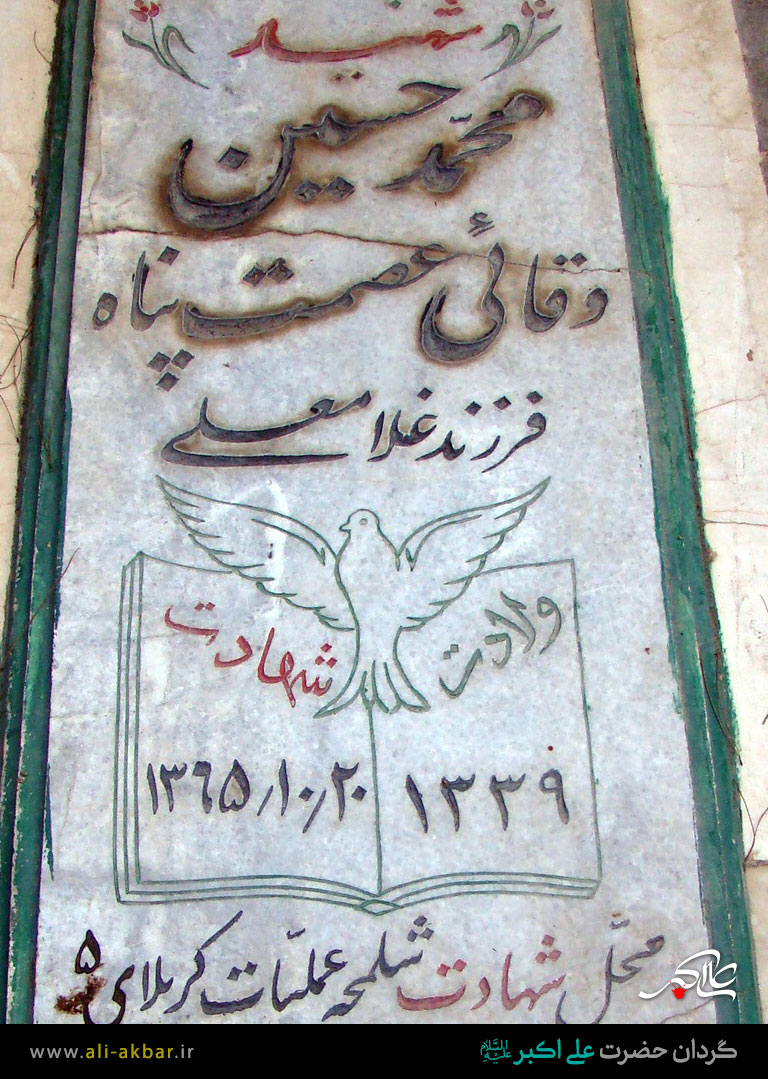 شهید
محمّد حسین
وقائی عصمت پناه
فرزند غلامعلی
ولادت
شهادت
۱۳۳۹
۱۳۶۵/۱۰/۲۰
محلّ شهادت شلمچه عملیّات کربلای ۵
علی اکبر
گردان حضرت علی اکبر علیه السلام
www.ali-akbar.ir